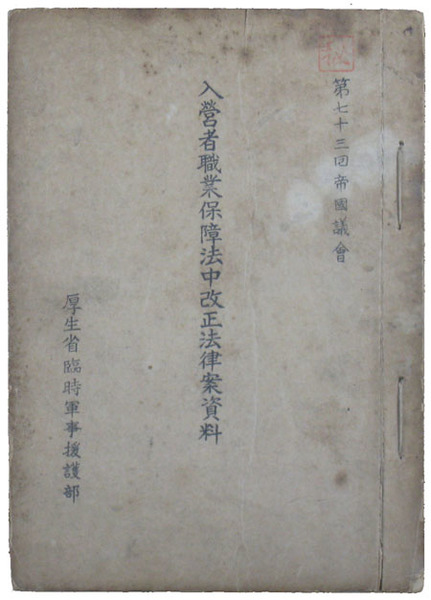 秘
第七十三回帝國議會
入營者職業保障法中改正法律案資料
厚生省臨時軍事援護部